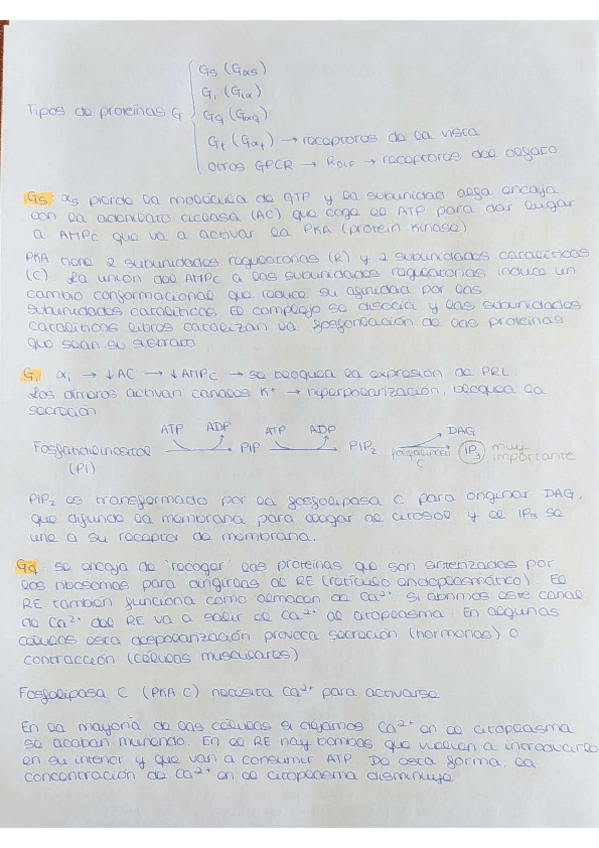 Tipos de proteínas G
Gs (Gαs)
Gi (Giα)
Gq (Gαq)
Gt (Gαt) → receptores de la vista
otros GPCR → Rolf → receptores del olfato
Gs αs pierde la molécula de GTP y la subunidad alfa encaja
con la adenilato ciclasa (AC) que coge el ATP para dar lugar
a AMPc que va a activar la PKA (protein kinase)
PKA tiene 2 subunidades regulatorias (R) y 2 subunidades catalíticas
(C). La unión del AMPc a las subunidades regulatorias induce un
cambio conformacional que reduce su afinidad por las
subunidades catalíticas. El complejo se disocia y las subunidades
catalíticas libres catalizan la fosforilación de las proteínas
que sean su sustrato
Gi αi → ↓AC → ↓AMPc → se bloquea la expresión de PRL
Los dímeros activan canales K+ → hiperpolarización, bloquea la
secreción
ATP ADP ATP ADP DAG
Fosfatidilinositol → PIP → PIP2 fosfolipasa C IP3 muy importante
(Pi)
PIP2 es transformado por la fosfolipasa C para originar DAG,
que difunde la membrana para llegar al citosol y el IP3 se
une a su receptor de membrana.
Gq se encaja de "recoger" las proteínas que son sintetizadas por
los ribosomas para dirigirlas al RE (retículo endoplasmático). El
RE también funciona como almacén de Ca2+. Si abrimos este canal
de Ca2+ del RE va a salir el Ca2+ al citoplasma. En algunas
células esta despolarización provoca secreción (hormonas) o
contracción (células musculares)
Fosfolipasa C (PKA C) necesita Ca2+ para activarse
En la mayoría de las células si dejamos Ca2+ en el citoplasma
se acaban muriendo. En el RE hay bombas que vuelven a introducirlo
en su interior y que van a consumir ATP. De esta forma, la
concentración de Ca2+ en el citoplasma disminuye